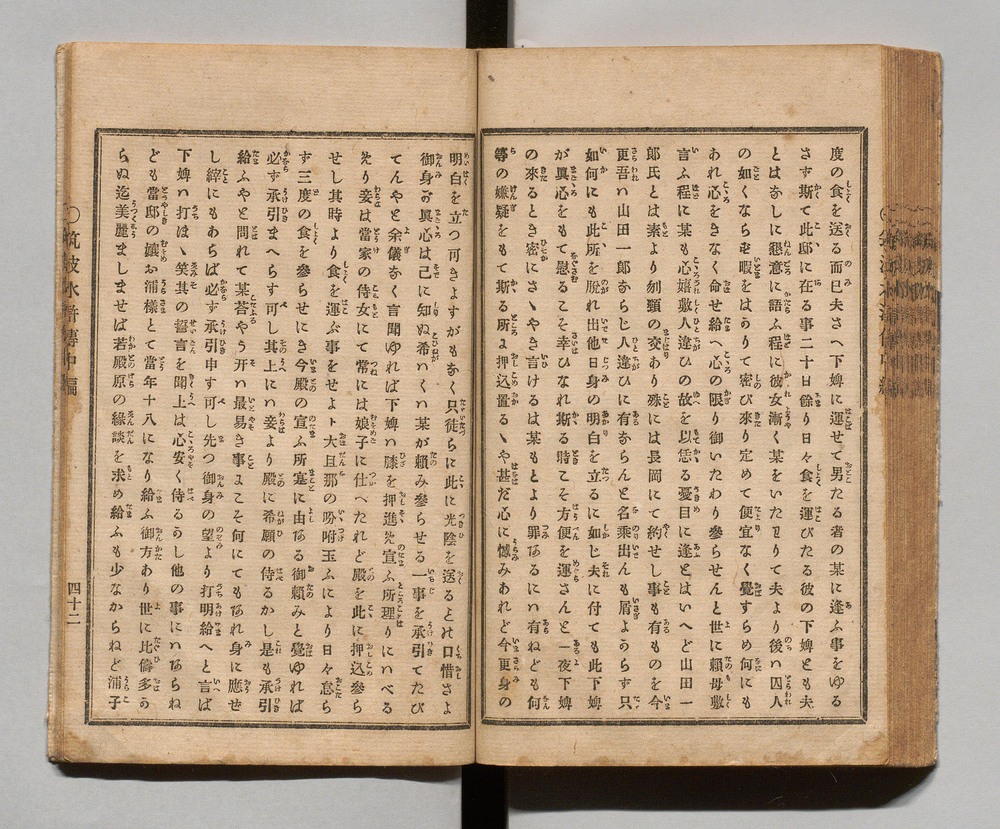 度の食を送る而已夫さへ下婢に運せて男たる者の某に逢ふ事をゆる
さず斯て此邸に在る事二十日餘り日々食を運びたる彼の下婢とも夫
とはなしに懇意に語ふ程に彼女漸く某をいたわりて夫より後ハ囚人
の如くなら
ず暇をはかりて密び來り定めて便宜なく覺すらめ何にも
あれ心をきなく命せ給へ心の限り御いたわり參らせんと世に賴母敷
言ふ程に某も心嬉敷人違ひの故を以恁る憂目に逢とはいへど山田一
郎氏とは素より刎頸の交あり殊には長岡にて約せし事も有るものを今
更吾ハ山田一郎ならじ人違ひに有ならんと名乘出んも屑よからず只
如何にも此所を脱れ出て他日身の明白りを立るに如じ夫に付ても此下婢
が眞心をもて慰るこそ幸ひなれ斯る時こそ方便を運さんと一夜下婢
の來るとき密にさゝやき言けるは某もとより罪あるにハ有ねども何
等の嫌疑をもて斯る所よ押込置るゝや甚だ心に憾みあれど今更身の
明白を立つ可きよすがもなく只徒らに此に光陰を送るとハ口惜さよ
御身の眞心は已に知ぬ希ハくハ某が賴み參らせる一事を承引てたび
てんやと余儀なく言聞ゆれば下婢ハ膝を押進め宣ふ所理りにハべる
なり妾は當家の侍女にて常には娘子に仕へたれど殿を此に押込參ら
せし其時より食を運ぶ事をせよト大旦那の吩咐玉ふにより日々怠ら
ず三度の食を參らせにき今殿の宣ふ所寔に由ある御賴みと覺ゆれば
必ず承引まへらす可し其上にハ妾より殿に希願の侍るかし是も承引
給ふやと問れて某荅やう开ハ最易き事よこそ何にてもあれ身に應せ
し縡にもあらば必す承引申す可し先つ御身の望より打明給へと言ば
下婢ハ打ほゝ笑其の誓言を聞上は心安く侍るかし他の事にハあらね
ども當邸の孃お浦樣とて當年十八になり給ふ御方わり世に比儔多か
らぬ迄美麗ましませば若殿原の緣談を求め給ふも少なからねど浦子
○筑波水滸傳中編
四十二